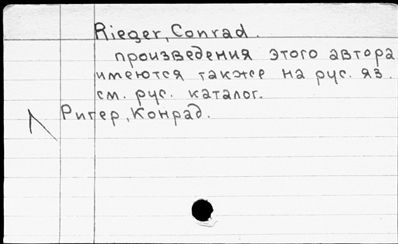 Rieger, Conrad.
произведения этого автора
имеются также на рус. яз.
см. рус. каталог.
Ригер, Конрад.